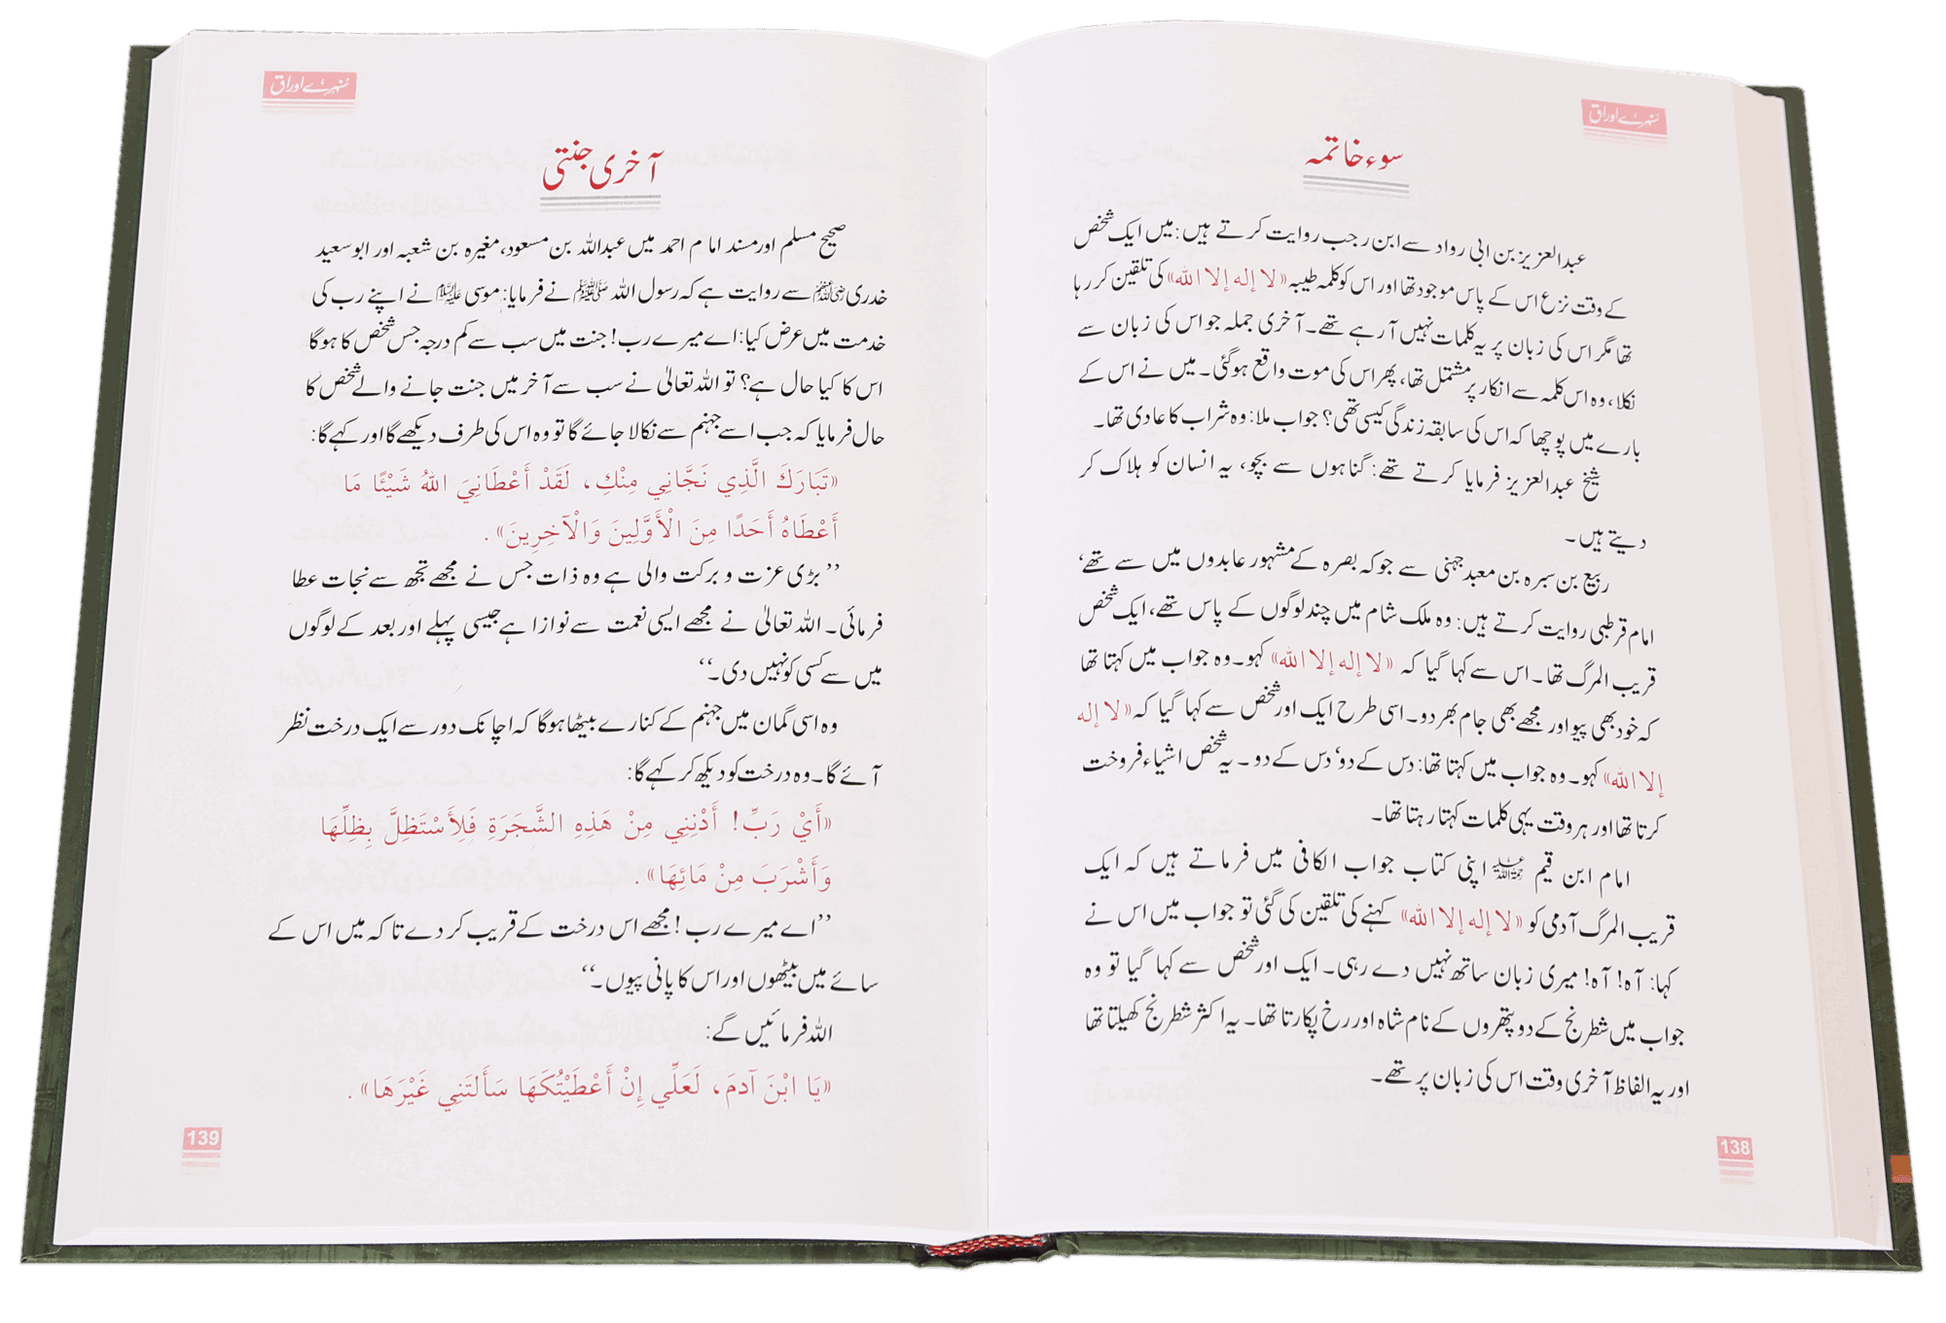 سنہرے اوراق
سوء خاتمہ
عبدالعزیز بن ابی رواد سے ابن رجب روایت کرتے ہیں: میں ایک شخص
کے وقت نزع اس کے پاس موجود تھا اور اس کو کلمہ طیبہ «لا إله إلا الله» کی تلقین کر رہا
تھا مگر اس کی زبان پر یہ کلمات نہیں آ رہے تھے۔ آخری جملہ جو اس کی زبان سے
نکلا، وہ اس کلمہ سے انکار پر مشتمل تھا، پھر اس کی موت واقع ہو گئی۔ میں نے اس کے
بارے میں پوچھا کہ اس کی سابقہ زندگی کیسی تھی؟ جواب ملا: وہ شراب کا عادی تھا۔
شیخ عبدالعزیز فرمایا کرتے تھے: گناہوں سے بچو، یہ انسان کو ہلاک کر
دیتے ہیں۔
ربیع بن سبرہ بن معبد جہنی سے جو کہ بصرہ کے مشہور عابدوں میں سے تھے،
امام قرطبی روایت کرتے ہیں: وہ ملک شام میں چند لوگوں کے پاس تھے، ایک شخص
قریب المرگ تھا۔ اس سے کہا گیا کہ «لا إله إلا الله» کہو۔ وہ جواب میں کہتا تھا
کہ خود بھی پیو اور مجھے بھی جام بھر دو۔ اسی طرح ایک اور شخص سے کہا گیا کہ «لا إله
إلا الله» کہو۔ وہ جواب میں کہتا تھا: دس کے دو‘ دس کے دو۔ یہ شخص اشیاء فروخت
کرتا تھا اور ہر وقت یہی کلمات کہتا رہتا تھا۔
امام ابن قیم رحمہ اللہ اپنی کتاب جواب الکافی میں فرماتے ہیں کہ ایک
قریب المرگ آدمی کو «لا إله إلا الله» کہنے کی تلقین کی گئی تو جواب میں اس نے
کہا: آہ! آہ! میری زبان ساتھ نہیں دے رہی۔ ایک اور شخص سے کہا گیا تو وہ
جواب میں شطرنج کے دو پتھروں کے نام شاہ اور رخ پکارتا تھا۔ یہ اکثر شطرنج کھیلتا تھا
اور یہ الفاظ آخری وقت اس کی زبان پر تھے۔
138
سنہرے اوراق
آخری جنتی
صحیح مسلم اور مسند امام احمد میں عبداللہ بن مسعود، مغیرہ بن شعبہ اور ابو سعید
خدری رضی اللہ عنہم سے روایت ہے کہ رسول اللہ ﷺ نے فرمایا: موسی علیہ السلام نے اپنے رب کی
خدمت میں عرض کیا: اے میرے رب! جنت میں سب سے کم درجہ جس شخص کا ہو گا
اس کا کیا حال ہے؟ تو اللہ تعالیٰ نے سب سے آخر میں جنت جانے والے شخص کا
حال فرمایا کہ جب اسے جہنم سے نکالا جائے گا تو وہ اس کی طرف دیکھے گا اور کہے گا:
«تَبَارَكَ الَّذِي نَجَّانِي مِنْكِ، لَقَدْ أَعْطَانِيَ اللهُ شَيْئًا مَا
أَعْطَاهُ أَحَدًا مِنَ الْأَوَّلِينَ وَالْآخِرِينَ».
’’بڑی عزت و برکت والی ہے وہ ذات جس نے مجھے تجھ سے نجات عطا
فرمائی۔ اللہ تعالیٰ نے مجھے ایسی نعمت سے نوازا ہے جیسی پہلے اور بعد کے لوگوں
میں سے کسی کو نہیں دی۔‘‘
وہ اسی گمان میں جہنم کے کنارے بیٹھا ہو گا کہ اچانک دور سے ایک درخت نظر
آئے گا۔ وہ درخت کو دیکھ کر کہے گا:
«أَيْ رَبِّ! أَدْنِنِي مِنْ هَذِهِ الشَّجَرَةِ فَلِأَسْتَظِلَّ بِظِلِّهَا
وَأَشْرَبَ مِنْ مَائِهَا».
’’اے میرے رب! مجھے اس درخت کے قریب کر دے تاکہ میں اس کے
سائے میں بیٹھوں اور اس کا پانی پیوں۔‘‘
اللہ فرمائیں گے:
«يَا ابْنَ آدمَ، لَعَلِّي إِنْ أَعْطَيْتُكَهَا سَأَلتَنِي غَيْرَهَا».
139